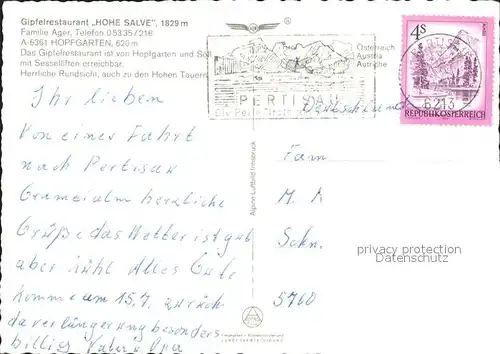 Gipfelrestaurant „HOHE SALVE", 1829 m
Familie Ager, Telefon 05335/216
A-6361 HOPFGARTEN, 620 m
Das Gipfelrestaurant ist von Hopfgarten und Söll
mit Sesselliften erreichbar.
Herrliche Rundsicht, auch zu den Hohen Tauern.
Österreich
Austria
Autriche
PERTISAU
Die Perle Tirols
6213
4 S
REPUBLIK ÖSTERREICH
Deutschland
Ihr lieben
Von einer Fahrt
nach Pertisau
Gramaialm herzliche
Grüße das Wetter ist gut
aber kühl Alles Gute
komme am 15.7. zurück
da verlängerung besonders
billig Opa
Fam
M. A
Schn.
5760
Alpine Luftbild Innsbruck
privacy protection
Datenschutz